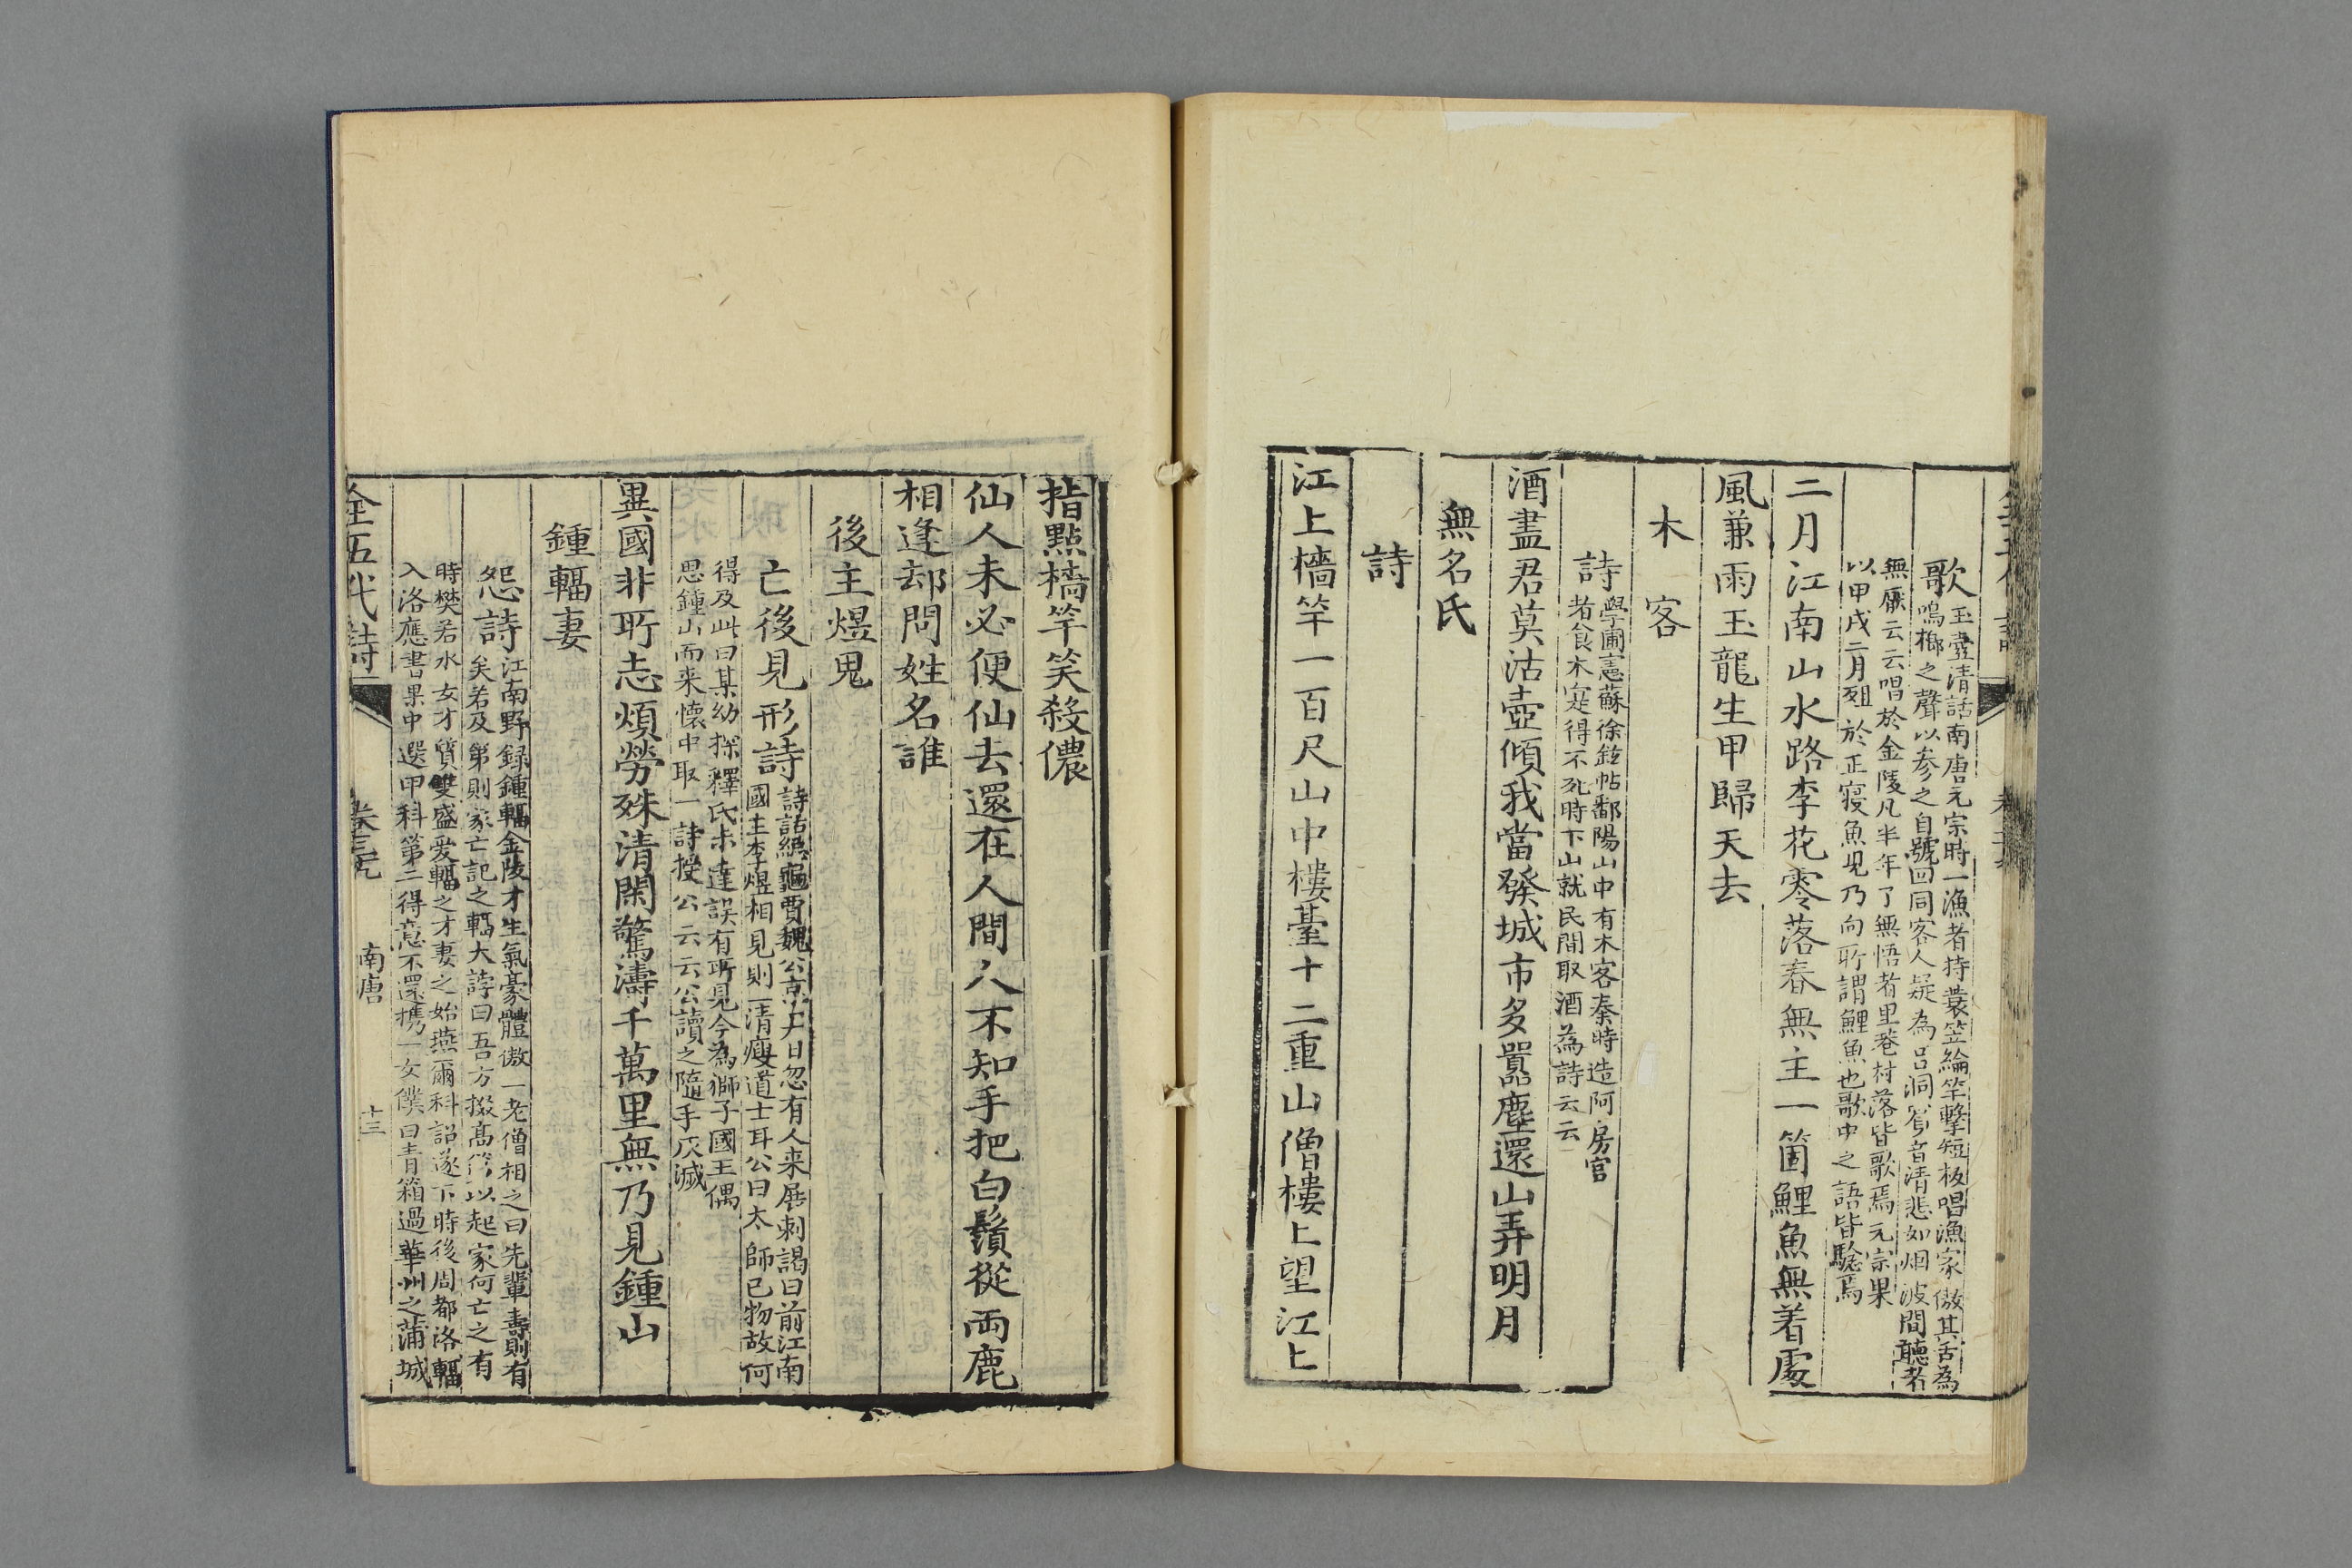 歌玉壺清話南唐元宗時一漁者持蓑笠綸竿擊短板唱漁家傲其舌為
嗚榔之聲以參之自號回同客人疑為呂洞賓音清悲如烟波間聽者
無厭云云唱於金陵凡半年了無悟者里巷村落皆歌焉元宗果
以甲戌二月殂於正寢魚児乃向所謂鯉魚也歌中之語皆騐焉
二月江南山水路李花零落春無主一箇鯉魚無着處
風兼雨玉龍生甲歸天去
木客
詩學圃憲蘇徐鉉帖鄱陽山中有木客秦時造阿房宫
者食木寔得不死時下山就民間取酒為詩云云
酒盡君莫沽壺傾我當發城市多囂塵還山弄明月
無名氏
詩
江上檣竿一百尺山中樓臺十二重山僧樓上望江上
指點檣竿笑殺儂
仙人未必便仙去還在人間人不知手把白鬚從兩鹿
相逢却問姓名誰
後主煜鬼
亡後見形詩詩話總龜賈魏公京尹日忽有人来展刺謁曰前江南
國主李煜相見則一清瘦道士耳公曰太師已物故何
得及此曰某幼探釋氏未達誤有所見今為獅子國王偶
思鍾山而来懐中取一詩授公云云公讀之隨手灰滅
異國非所志煩勞殊清閑驚濤千萬里無乃見鍾山
鍾輻妻
怨詩江南野録鍾輻金陵才生氣豪體傲一老僧相之曰先輩壽則有
矣若及第則家亡記之輻大誇曰吾方掇髙第以起家何亡之有
時樊若水女才質雙盛爱輻之才妻之始燕爾科詔遂下時後周都洛輻
入洛應書果中選甲科第二得意不還携一女僕曰青箱過華州之蒲城
全五代詩 南唐 十三